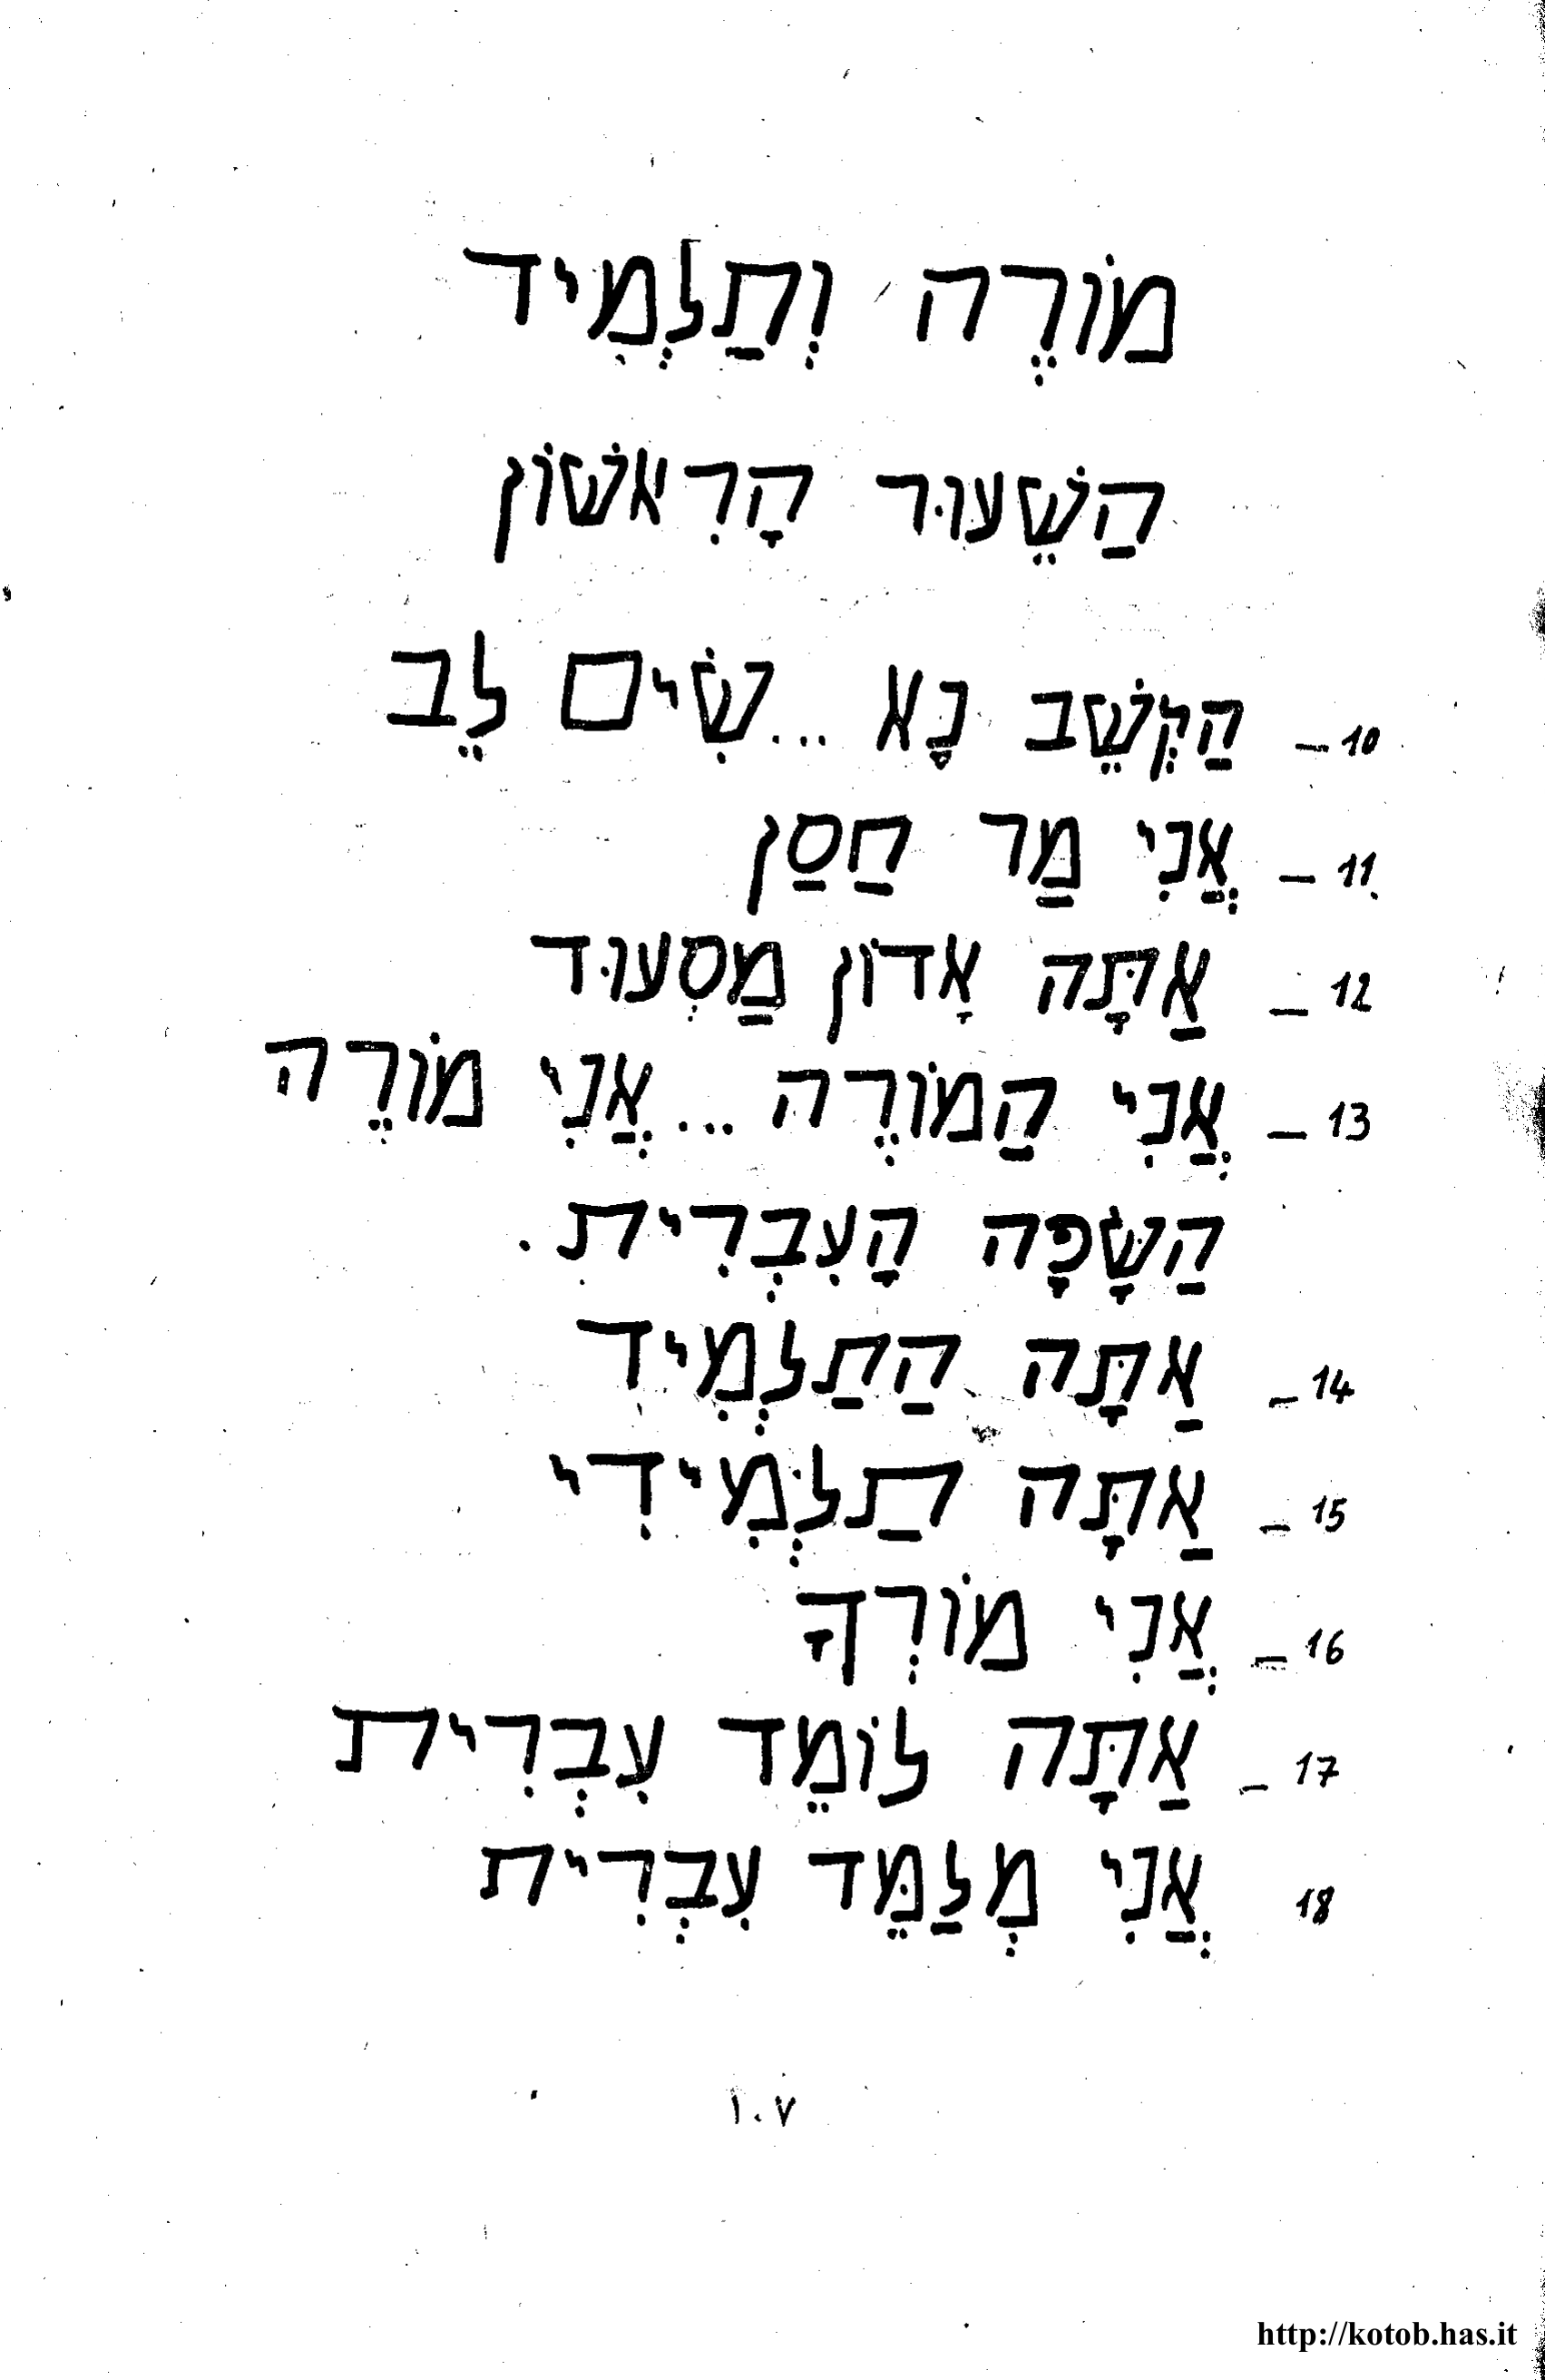 מוֹרֶה וְתַלְמִיד
הַשֵׁעוּר הָרִאשׁוֹן
10 – הַקְשֵׁב נָא ...שִׂים לֵב
11 – אֲנִי מַר חַסַן
12 – אַתָּה אָדוֹן מַסְעוּד
13 – אֲנִי הַמוֹרֶה ...אֲנִי מוֹרֶה
הַשָּׂפָה הָעִבְרִית .
14 – אַתָּה הַתַלְמִיד
15 – אַתָּה תַלְמִידִי
16 – אֲנִי מוֹרְךָ
17 – אַתָּה לוֹמֵד עִבְרִית
18 אֲנִי מְלַמֵּד עִבְרִית
١٠٧
http://kotob.has.it